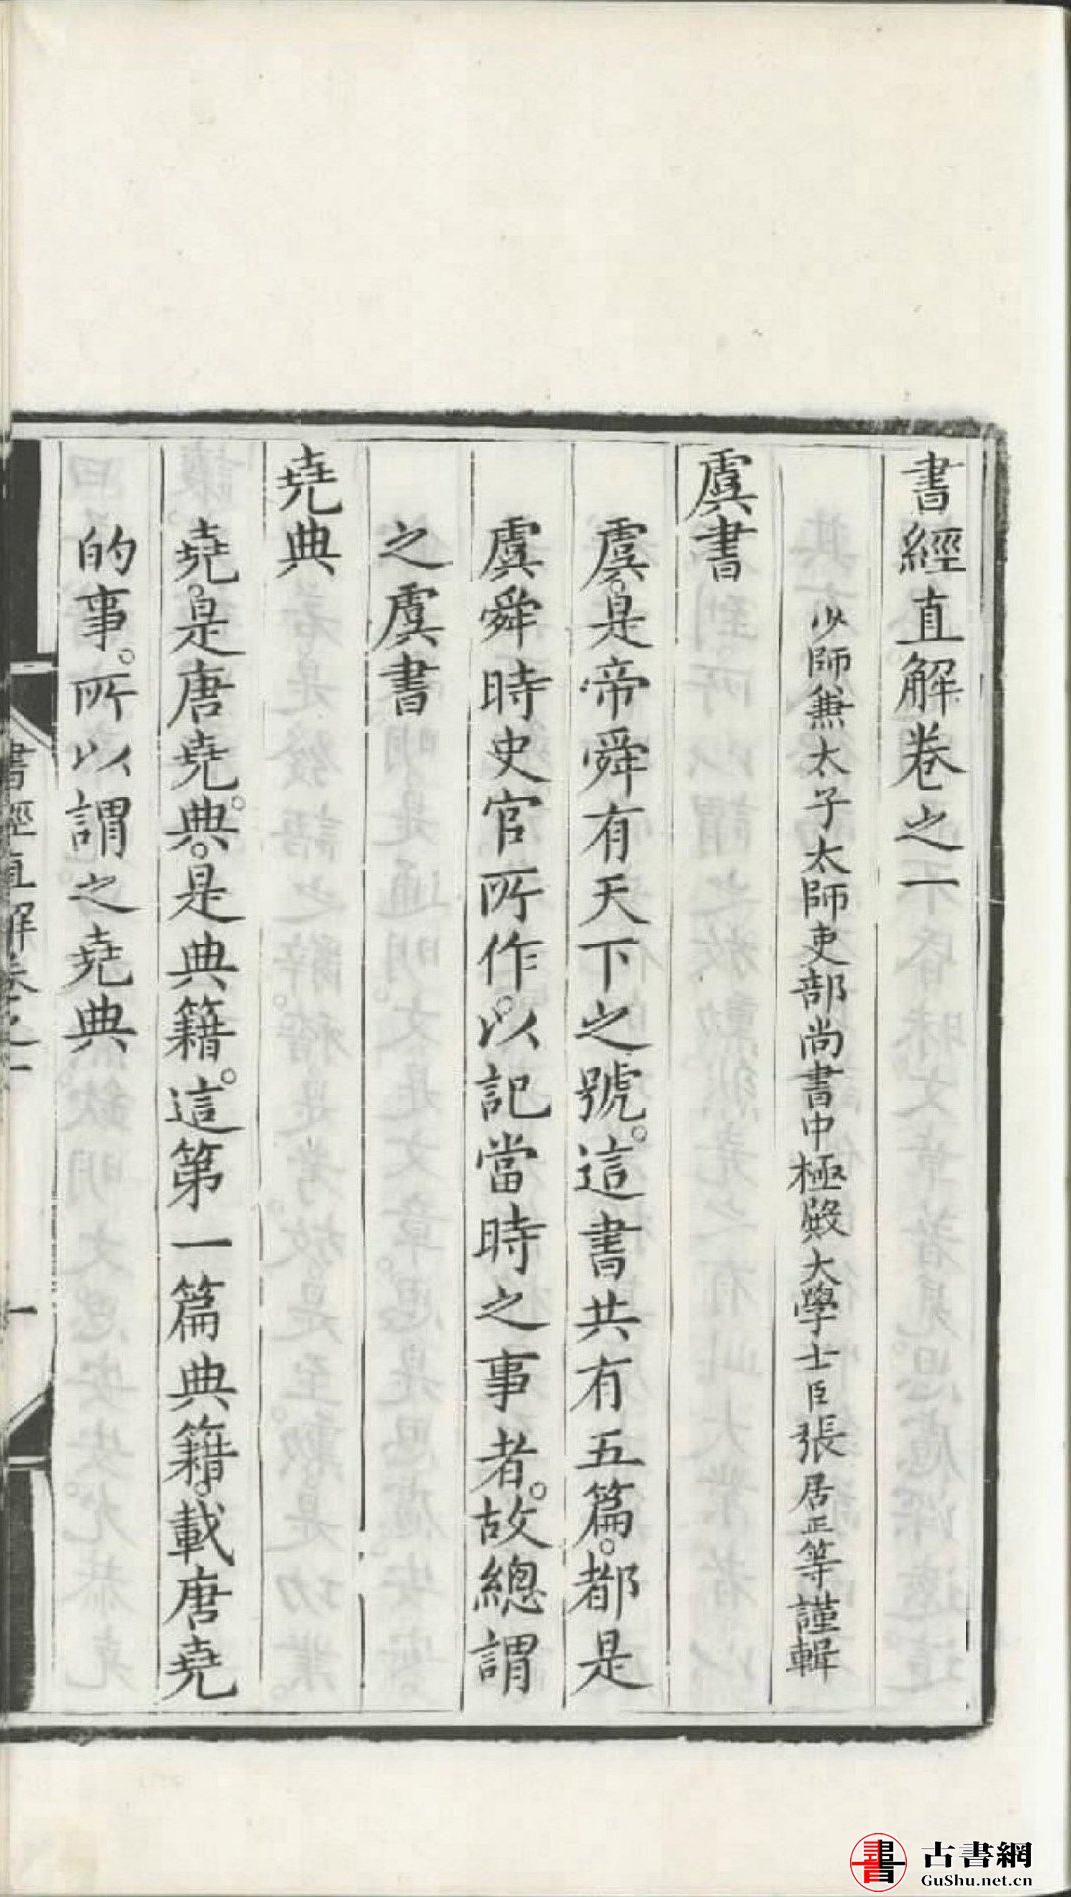 書經直解卷之一
少師兼太子太師吏部尚書中極殿大學士臣張居正等謹輯
虞書
虞。是帝舜有天下之號。這書共有五篇。都是
虞舜時史官所作。以記當時之事者。故總謂
之虞書
堯典
堯。是唐堯。典。是典籍。這第一篇典籍。載唐堯
的事。所以謂之堯典
書經直解卷之一
一
古書網
GuShu.net.cn